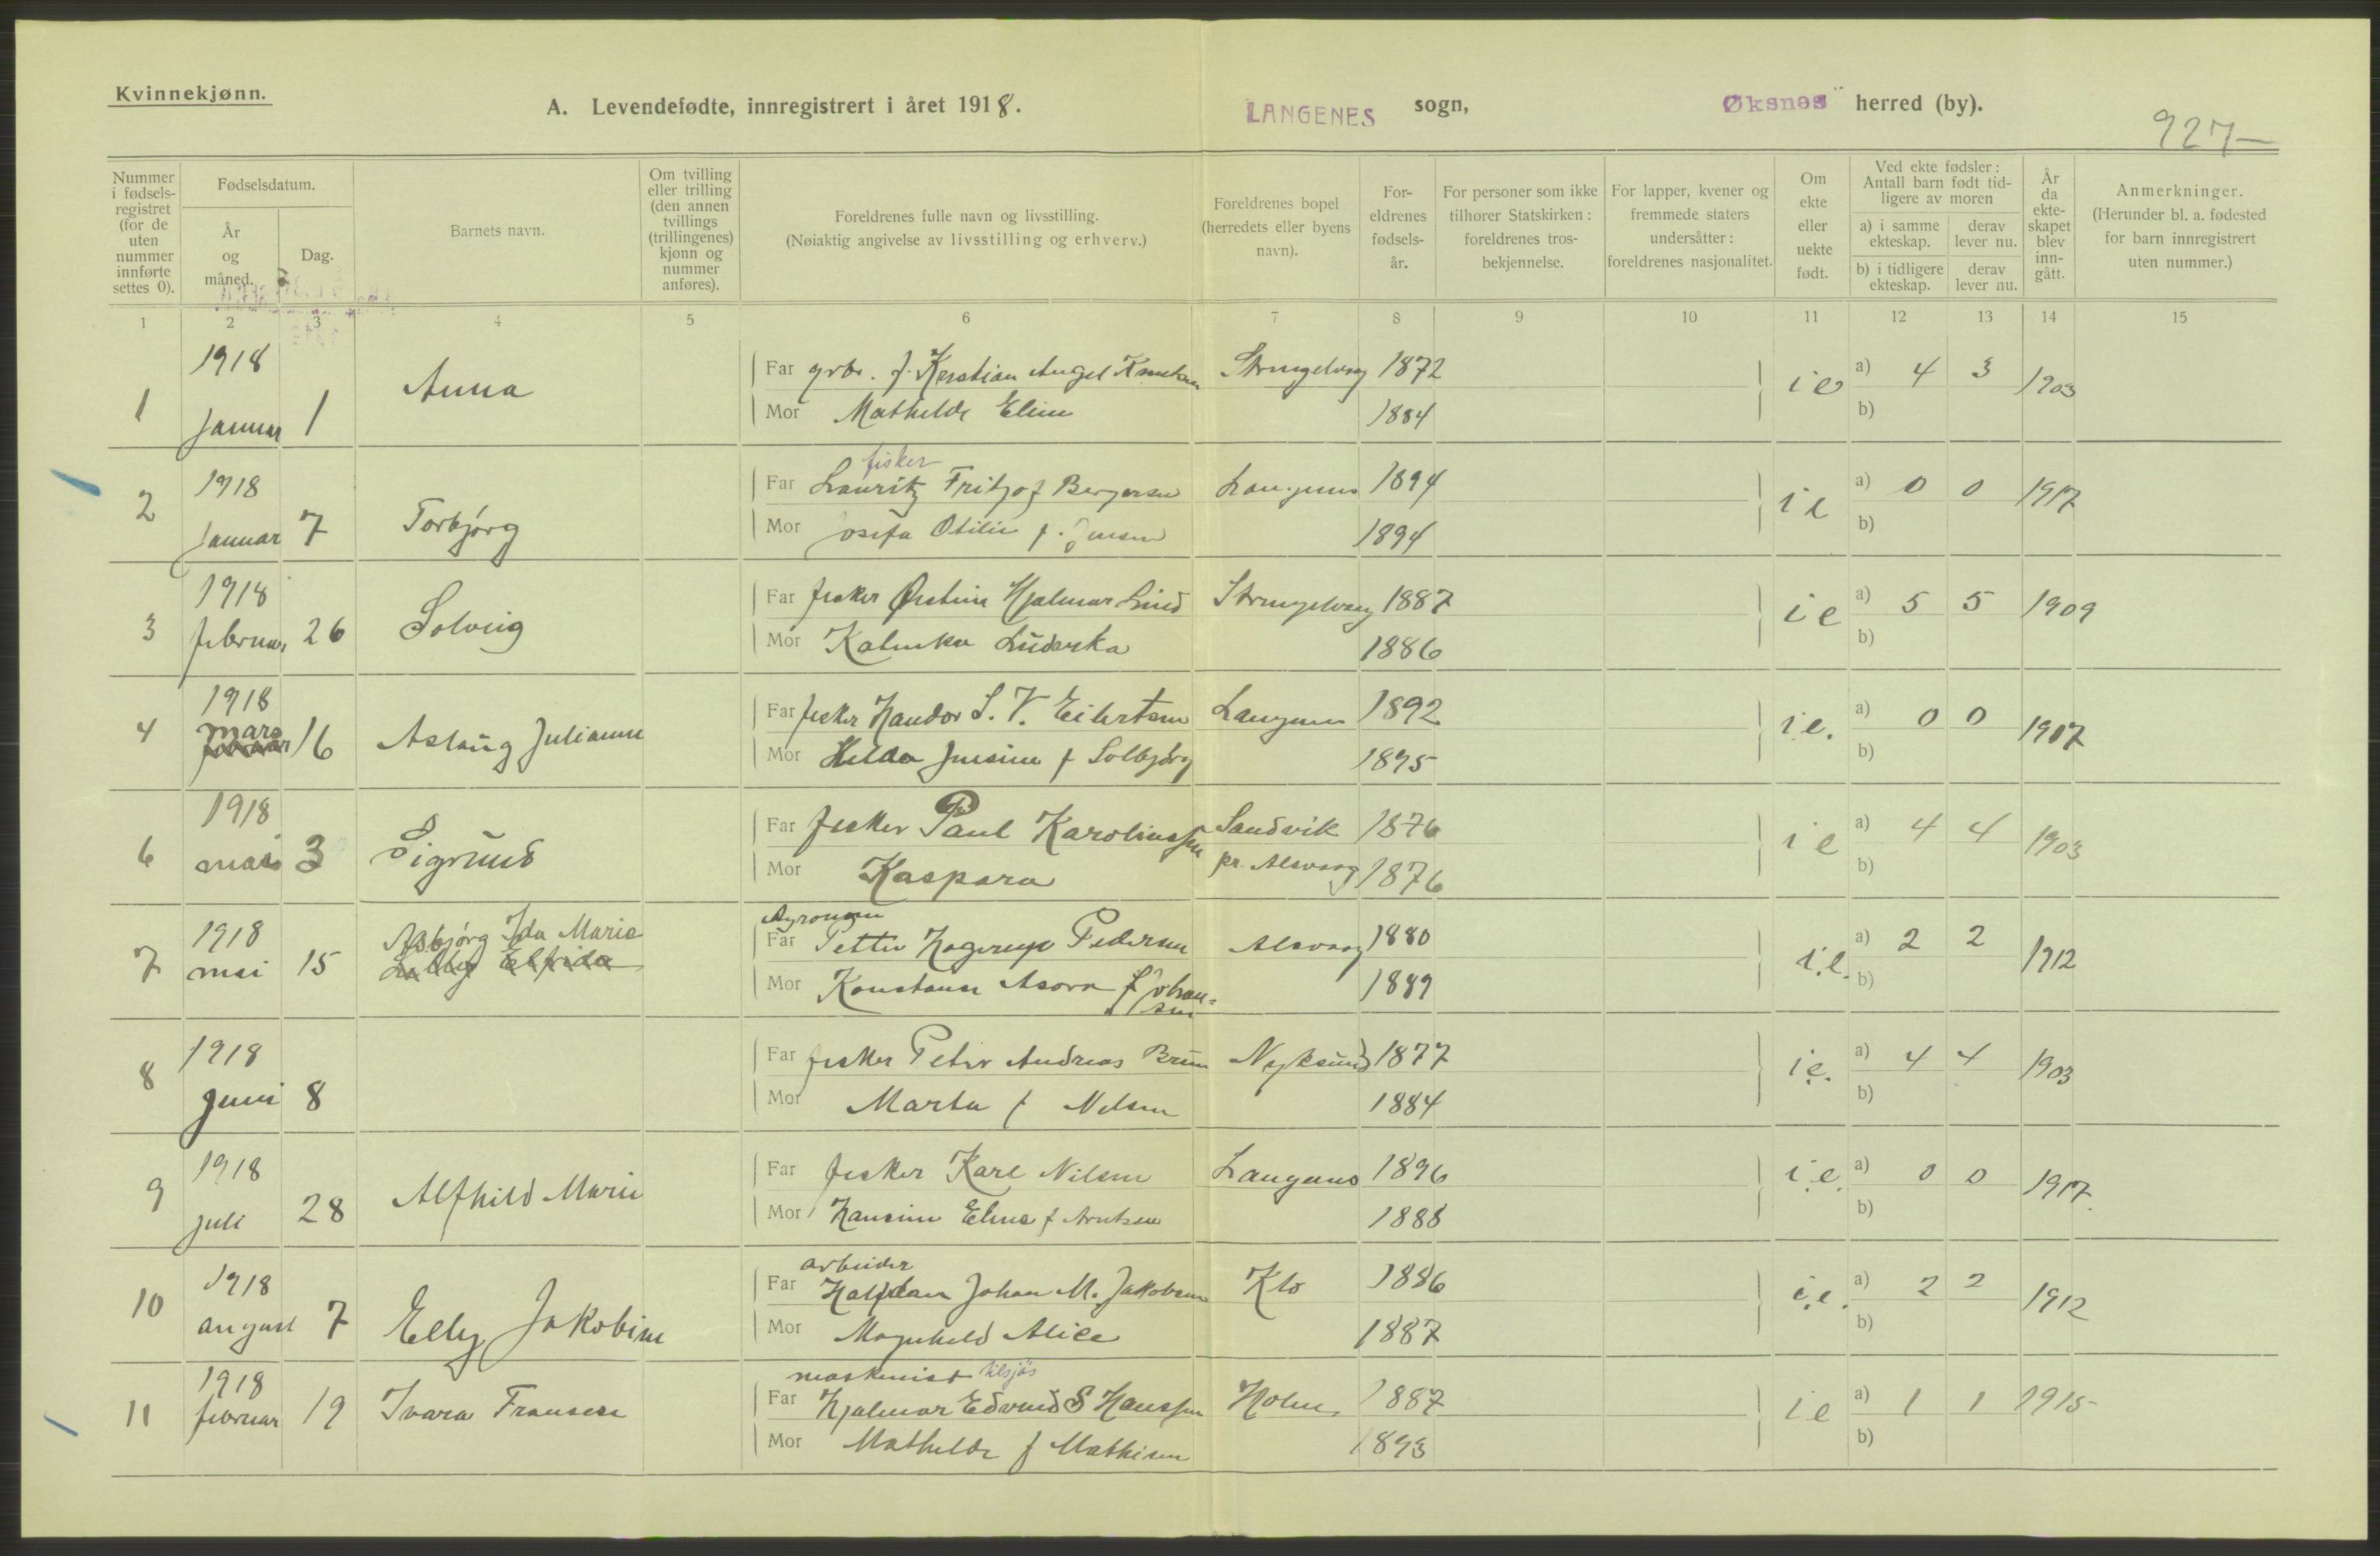 Kvinnekjønn.
A. Levendefødte, innregistrert i året 1918.
LANGENES sogn, Øksnes herred (by).
927
Nummer i fødsels-registret (for de uten nummer innførte settes 0).
Fødselsdatum.
År og måned.
Dag.
Barnets navn.
Om tvilling eller trilling (den annen tvillings (trillingenes) kjønn og nummer anføres).
Foreldrenes fulle navn og livsstilling.
(Nøiaktig angivelse av livsstilling og erhverv.)
Foreldrenes bopel (herredets eller byens navn).
For-eldrenes fødsels-år.
For personer som ikke tilhører Statskirken: foreldrenes tros-bekjennelse.
For lapper, kvener og fremmede staters undersåtter: foreldrenes nasjonalitet.
Om ekte eller uekte født.
Ved ekte fødsler: Antall barn født tid-ligere av moren
a) i samme ekteskap.
derav lever nu.
b) i tidligere ekteskap.
derav lever nu.
År da ekte-skapet blev inn-gått.
Anmerkninger.
(Herunder bl. a. fødested for barn innregistrert uten nummer.)
1 2 3 4 5 6 7 8 9 10 11 12 13 14 15
1 1918 Januar 1 Anna
Far Angel 1872
Mor Mathilde Eline 1884
ie a) 4 3 1903
b)
2 1918 Januar 7 Torbjørg
fisker
Far Lauritz Fritjof Bergersen Langenes 1894
Mor Josefa Otilie f. Jensen 1894
ie a) 0 0 1917
b)
3 1918 februar 26 Solveig
Far fisker Hjalmar Lind 1887
Mor 1886
ie a) 5 5 1909
b)
4 1918 mars februar 16 Aslaug Julianne
Far fisker Handor S. V. Eilertsen Langenes 1892
Mor Helda Jensine f Solbjørg 1895
i.e. a) 0 0 1917
b)
6 1918 mai 3 Sigrund
Far fisker Paul Karoliussen Sandvik 1876
Mor Kaspara pr. Alsvaag 1876
ie a) 4 4 1903
b)
7 1918 mai 15 Asbjørg Ida Marie
Elfrida
Agronom
Far Petter Hagerup Pedersen Alsvaag 1880
Mor Konstanse Asora f Johan=
sen 1889
i.e. a) 2 2 1912
b)
8 1918 Juni 8
Far fisker Peter Andreas Brun Nyksund 1877
Mor Marta f Nilsen 1884
i.e. a) 4 4 1903
b)
9 1918 juli 28 Alfhild Marie
Far fisker Karl Nilsen Langenes 1896
Mor Hansine Eline f Arntsen 1888
i.e. a) 0 0 1917.
b)
10 1918 august 7 Elly Jakobine
arbeider
Far Halfdan Johan M. Jakobsen Klo 1886
Mor Magnhild Alice 1887
i.e. a) 2 2 1912
b)
11 1918 februar 19 Ivara Fransese
maskinist tilsjøs
Far Hjalmar Edvind S Hanssen Holm 1887
Mor Mathilde f Mathisen 1893
ie a) 1 1 1915
b)